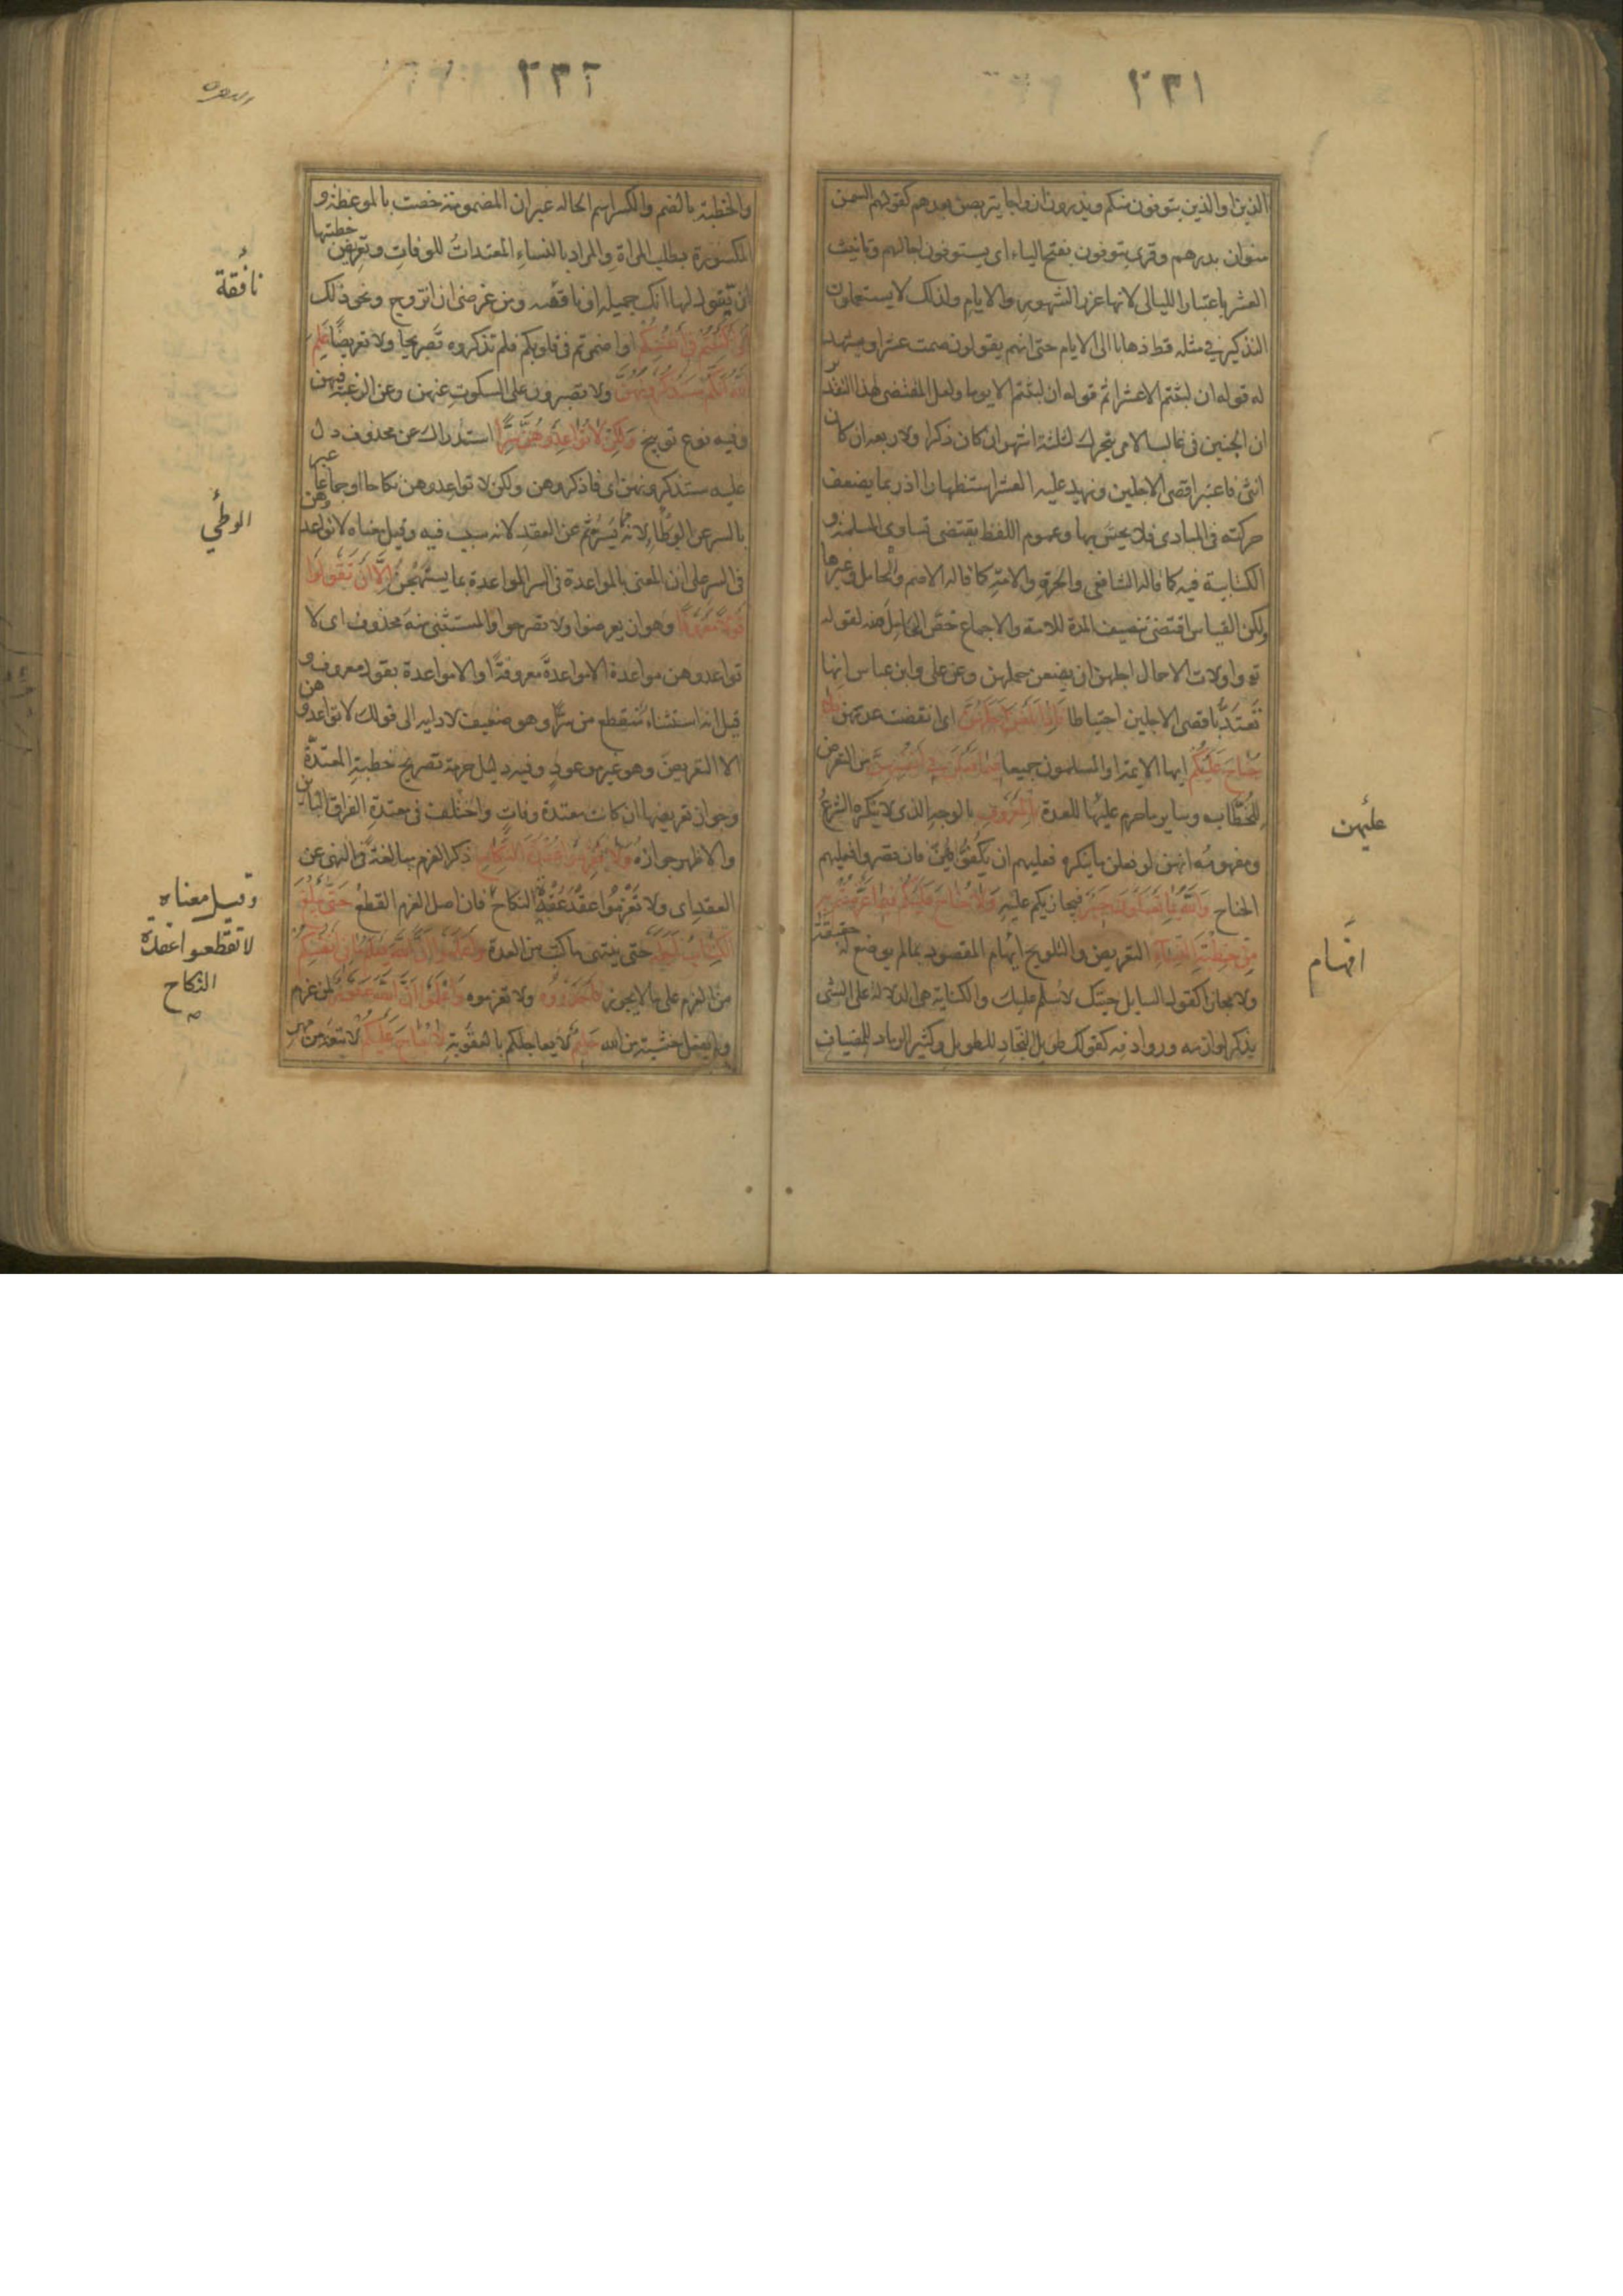 ٢٣١
الذين او الذين يتوفون منكم ويذرون ازواجا يتربصن بعدهم كقولهم السمن
منوان بدرهم وقرئ يتوفون بفتح الياء اى يستوفون اجالهم وتانيث
العشر باعتبار الليالى لانها غرر الشهور والايام ولذلك لا يستعملون
التذكير فى مثله قط ذهابا الى الايام حتى انهم يقولون صمت عشرا ويشهد
له قوله ان لبثتم الا عشرا ثم قوله ان لبثتم الا يوما ولعل المقتضى لهذا التقدير
ان الجنين فى غالب الامر يتحرك لثلثة اشهر ان كان ذكرا ولاربعة ان كان
انثى فاعتبر اقصى الاجلين وزيد عليه العشر استظهارا اذ ربما يضعف
حركته فى المبادى فلا يحس بها وعموم اللفظ يقتضى تساوى المسلمة و
الكتابية فيه كما قاله الشافعى والحرة والامة كما قاله الاصم والحامل وغيرها
ولكن القياس اقتضى تنصيف المدة للامة والاجماع خص الحامل منه لقوله
تع واولات الاحمال اجلهن ان يضعن حملهن وعن على وابن عباس انها
تعتد باقصى الاجلين احتياطا فَاِذَا بَلَغْنَ اَجَلَهُنَّ اى انقضت عدتهن فلا
جُنَاحَ عَلَيْكُمْ ايها الايمة او المسلمون جميعا فِيمَا فَعَلْنَ فِي اَنْفُسِهِنَّ من التعرض
للخُطَّاب وساير ما حرم عليها للعدة بِالْمَعْرُوفِ بالوجه الذى لا ينكره الشرع
ومفهومه انهن لو فعلن ما ينكره فعليهم ان يكفوهن فان قصروا فعليهم
الجناح وَاللّٰهُ بِمَا تَعْمَلُونَ خَبِيرٌ فيجازيكم عليه وَلَا جُنَاحَ عَلَيْكُمْ فِيمَا عَرَّضْتُمْ بِهِ
مِنْ خِطْبَةِ النِّسَاءِ التعريض والتلويح ايهام المقصود بما لم يوضع له حقيقة
ولا مجازا كقول السايل جئتك لاسلم عليك والكناية هى الدلالة على الشى
بذكر لوازمه وروادفه كقولك طويل النجاد للطويل وكثير الرماد للمضياف
عليهن
افهام
٢٣٢
البقرة
والخطبة بالضم والكسر اسم الحالة غير ان المضمومة خصت بالموعظة و
المكسورة بطلب المراة والمراد بالنساء المعتدات للوفات وتعريض خطبتها
ان يقول لها انك جميلة او نافقه ومن غرضى ان اتزوج ونحو ذلك
اَوْ اَكْنَنْتُمْ فِي اَنْفُسِكُمْ او اضمرتم فى قلوبكم فلم تذكروه تصريحا ولا تعريضا عَلِمَ
اللّٰهُ اَنَّكُمْ سَتَذْكُرُونَهُنَّ ولا تصبرون على السكوت عنهن وعن الرغبة فيهن
وفيه نوع توبيخ وَلٰكِنْ لَا تُوَاعِدُوهُنَّ سِرًّا استدراك عن محذوف دل
عليه ستذكرونهن اى فاذكروهن ولكن لا تواعدوهن نكاحا او جماعا عبر
بالسر عن الوطاء لانه مما يسر ثم عن العقد لانه سبب فيه وقيل معناه لا تواعدوهن
فى السر على ان المعنى بالمواعدة فى السر المواعدة بما يستهجن اِلَّا اَنْ تَقُولُوا
قَوْلًا مَعْرُوفًا وهو ان يعرضوا ولا تصرحوا والمستثنى منه محذوف اى لا
تواعدوهن مواعدة الا مواعدة معروفة او الا مواعدة بقول معروف و
قيل انه استثناء منقطع من سرا وهو ضعيف لادايه الى قولك لا تواعدوهن
الا التعريض وهو غير موعود وفيه دليل حرمة تصريح خطبة المعتدة
وجواز تعريضها ان كانت معتدة وفات واختلف فى معتدة الفراق الباين
والاظهر جوازه وَلَا تَعْزِمُوا عُقْدَةَ النِّكَاحِ ذكر العزم مبالغة فى النهى عن
العقد اى ولا تعزموا عقد عقدة النكاح فان اصل العزم القطع حَتّٰى يَبْلُغَ
الْكِتَابُ اَجَلَهُ حتى ينتهى ما كتب من العدة وَاعْلَمُوا اَنَّ اللّٰهَ يَعْلَمُ مَا فِي اَنْفُسِكُمْ
من العزم على ما لا يجوز فَاحْذَرُوهُ ولا تعزموه وَاعْلَمُوا اَنَّ اللّٰهَ غَفُورٌ لمن عزم
ولم يفعل خشية من الله حَلِيمٌ لا يعاجلكم بالعقوبة لَا جُنَاحَ عَلَيْكُمْ لا تبعة من مهر
نافقة
الوطئ
وقيل معناه
لا تقطعوا عقدة
النكاح